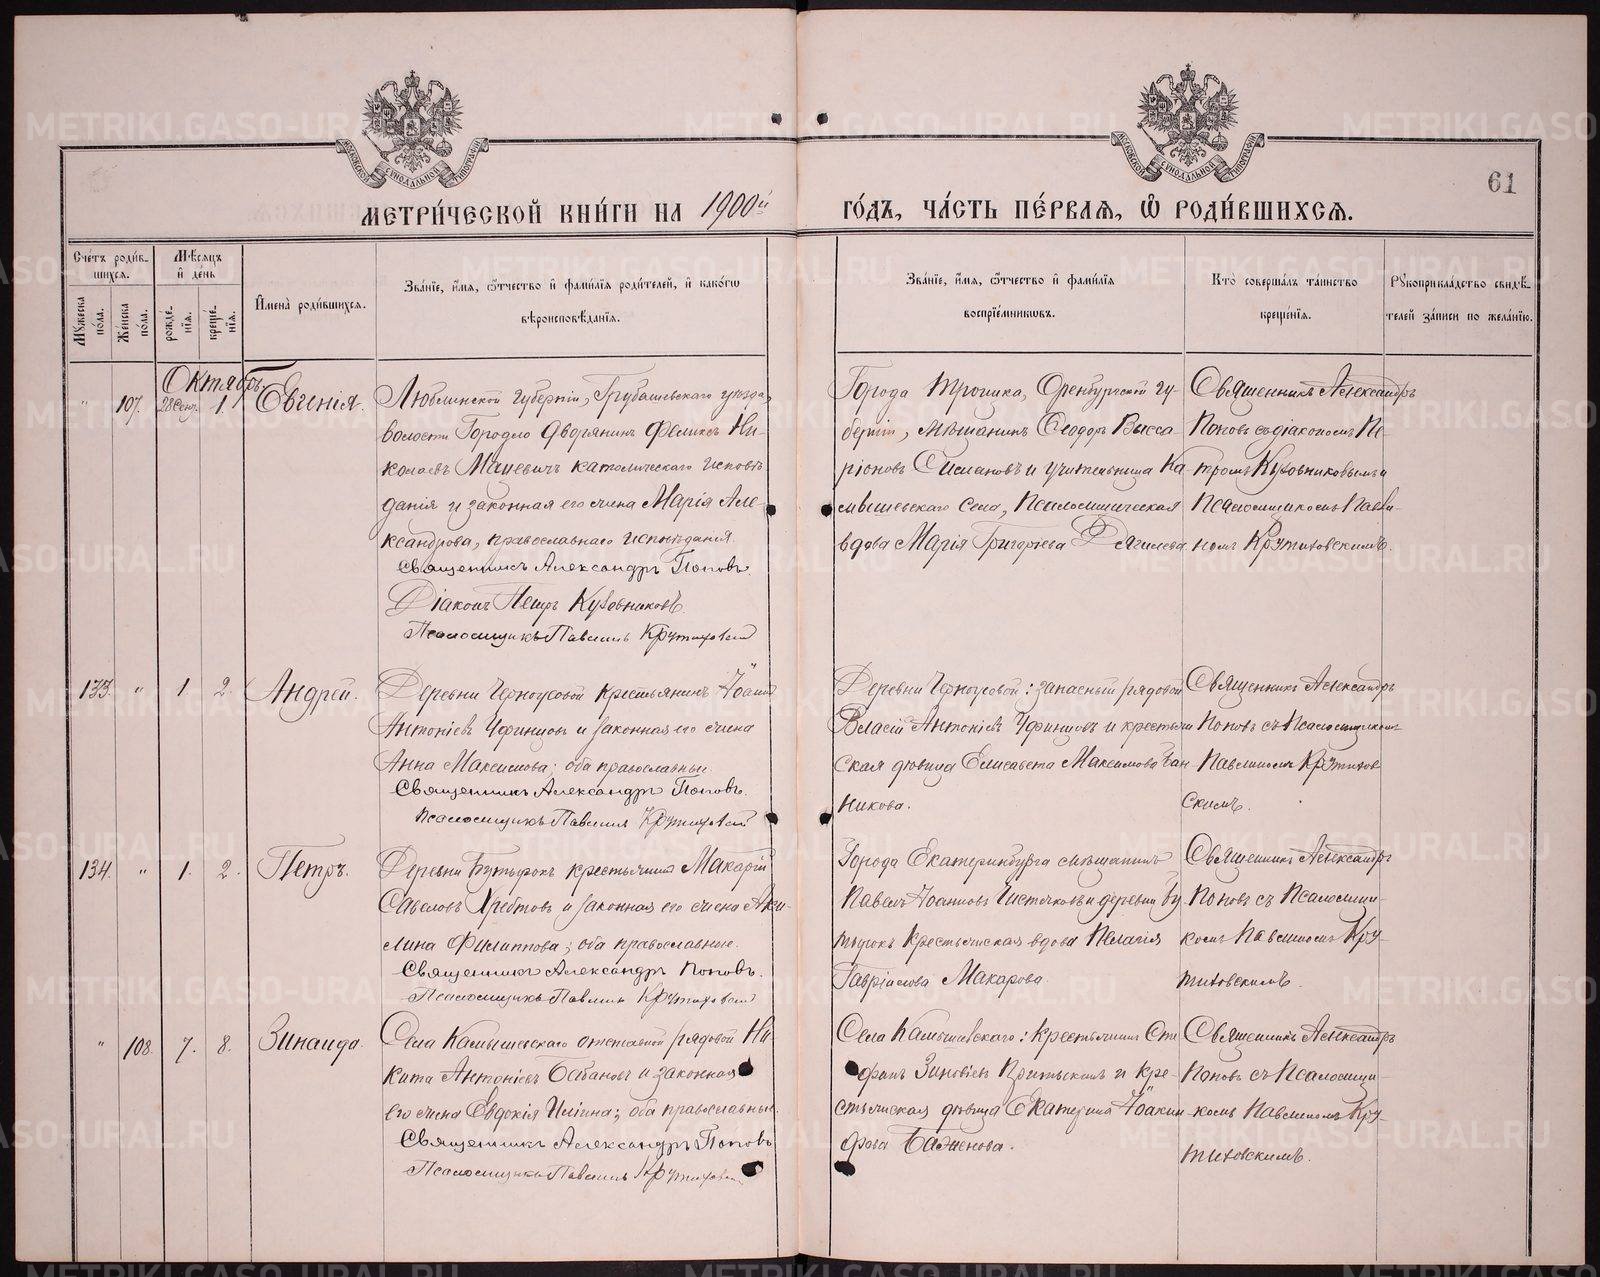 МЕТРИ́ЧЕСКОЙ КНИ́ГИ НА 1900й ГО́ДЪ, ЧА́СТЬ ПЕ́РВАѦ, Ѽ РОДИ́ВШИХСѦ.
61
Сче́тъ роди́в-
шихсѧ.
Мѣ́сѧцъ
и҆ де́нь
Мꙋ́жеска по́ла.
Же́нска по́ла.
рожде́-
нїѧ.
креще́-
нїѧ.
И҆мена̀ роди́вшихсѧ.
Зва́нїе, и҆́мѧ, ѻ҆́тчество и҆ фами́лїѧ роди́телей, и҆ како́гѡ
вѣроисповѣ́данїѧ.
Зва́нїе, и҆́мѧ, ѻ҆́тчество и҆ фами́лїѧ
воспрїе́мниковъ.
Кто̀ соверша́лъ та́инство
креще́нїѧ.
Рꙋкоприкла́дство свидѣ́-
телей за́писи по жела́нїю.
Октябрь
" 107. 28 Сент. 1. Евгенія.
Люблинской губерніи, Грубешевскаго уѣзда,
волости Городло Дворянинъ Феликсъ Ни-
колаевъ Мацевичъ католическаго исповѣ-
данія и законная его жена Марія Але-
ксандрова, православнаго исповѣданія.
Священникъ Александръ Поповъ.
Діаконъ Петръ Кузовниковъ.
Псаломщикъ Павлинъ Крутиховскій
Города Троицка, Оренбургской гу-
берніи, мѣщанинъ Ѳеодоръ Висса-
ріоновъ и учительница Ка-
мышевскаго села, Псаломщическая
вдова Марія Григорьева Дягилева.
Священникъ Александръ
Поповъ съ діакономъ Пе-
тромъ Кузовниковымъ и
Псаломщикомъ Павли-
номъ Крутиховскимъ.
133. " 1. 2. Андрей.
Деревни Черноусовой крестьянинъ Іоаннъ
Антоніевъ и законная его жена
Анна Максимова; оба православные.
Священникъ Александръ Поповъ.
Псаломщикъ Павлинъ Крутиховскій
Деревни Черноусовой: запасный рядовой
Власій Антоніевъ и крестьян
ская дѣвица Елисавета Максимова Бан
никова.
Священникъ Александръ
Поповъ съ Псаломщикомъ
Павлиномъ Крутихов
скимъ.
134. " 1. 2. Петръ.
Деревни Бутырокъ крестьянинъ Макарій
Савеловъ Хребтовъ и законная его жена Аки-
лина Филиппова; оба православные.
Священникъ Александръ Поповъ.
Псаломщикъ Павлинъ Крутиховскій
Города Екатеринбурга мѣщанинъ
Павелъ Іоанновъ Чистяковъ и деревни Бу
тырокъ крестьянская вдова Пелагія
Гавріилова Макарова.
Священникъ Александръ
Поповъ съ Псаломщи-
комъ Павлиномъ Кру-
тиховскимъ.
" 108. 7. 8. Зинаида.
Села Камышевскаго отставной рядовой Ни-
кита Антоніевъ Бабановъ и законная
его жена Евдокія Иліина; оба православные.
Священникъ Александръ Поповъ
Псаломщикъ Павлинъ Крутиховскій
Села Камышевскаго: крестьянинъ Сте
фанъ Зиновіевъ и кре-
стьянская дѣвица Екатерина Іоаким
фова Баженова.
Священникъ Александръ
Поповъ съ Псаломщи-
комъ Павлиномъ Кру-
тиховскимъ.
METRIKI.GASO-URAL.RU